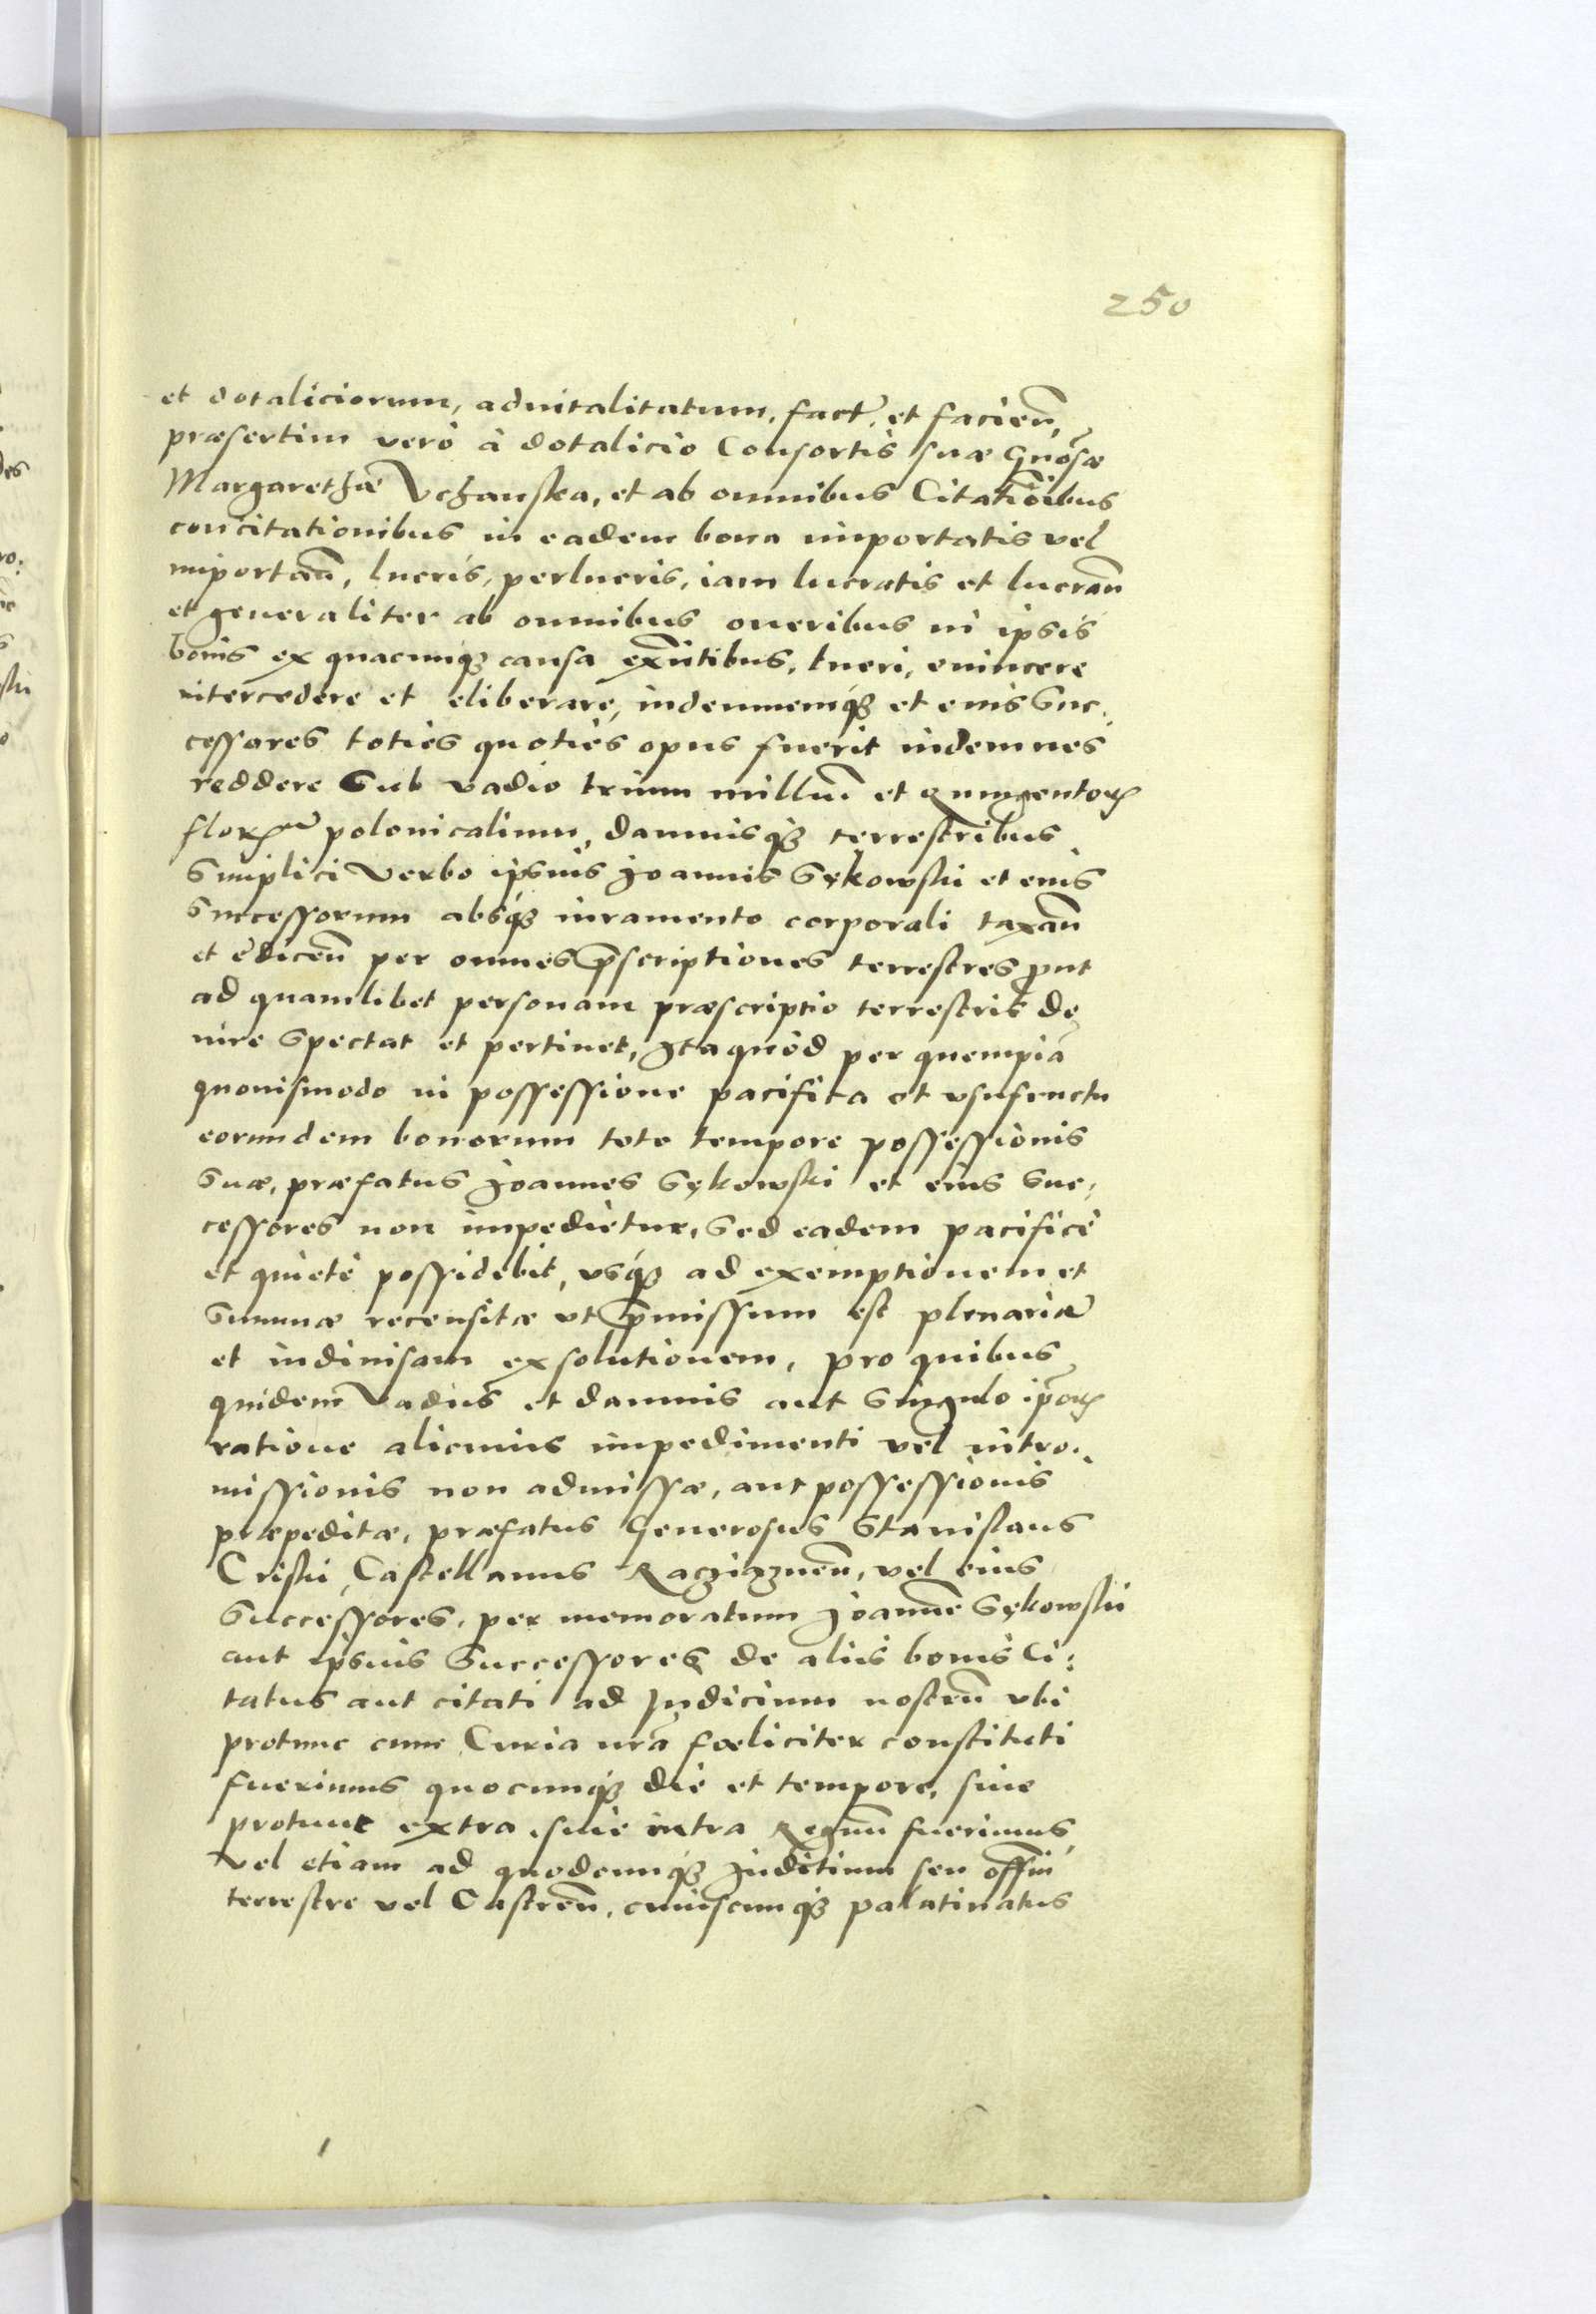 250
et dotaliciorum, advitalitatum, fact˜, et facień,
præsertim verò à dotalicio Consortis suæ Gnõsæ
Margarethæ Vchanska, et ab omnibus Citatiõibus
concitationibus in eadem bona importatis vel
importañ, lucris, perlucris, iam lucratis et lucrañ
et generaliter ab omnibus oneribus in ipsis
bonis ex quacunqꝫ causa exñtibus, tueri, evincere
intercedere et eliberare, indemnemqꝫ et eius Suc:
cessores toties quoties opus fuerit indemnes
reddere Sub vadio trium milliũ et Quingentoꝝ
floꝝ polonicalium, damnisqꝫ terrestribus
Simplici Verbo ipsius Joannis Sękowski et eius
Successorum absqꝫ iuramento corporali taxañ
et ediceñ per omnes p̃scriptiones terrestres ꝓut
ad quamlibet personam præscriptio terrestris de
iure Spectat et pertinet, Ita quòd per quempiã
quouismodo in possessione pacifica et vsufructu
eorundem bonorum toto tempore possessionis
Suæ, præfatus Joannes Sękowski et eius Suc:
cessores non impedietur, Sed eadem pacificè
et quietè possidebit, vsqꝫ ad exemptionem et
Summæ recensitæ vt p̃missum est plenariã
et indiuisam exsolutionem, pro quibus
quidem Vadiis et damnis aut Singulo ip̃oꝝ
ratione alicuius impedimenti vel intro:
missionis non admissæ, aut possessionis
præpeditæ, præfatus Generosus Stanislaus
Criski, Castellanus Raczizzneñ, vel eius
Successores, per memoratum Joannẽ Sękowski
aut ipsius Successores de aliis bonis Ci:
tatus aut citati ad Judicium nostrũ vbi
protunc cum Curia nr̃a fœliciter constituti
fuerimus quocunqꝫ die et tempore, siue
protunc extra, siue intra Regnũ fuerimus,
Vel etiam ad quodcunqꝫ Juditium seu offm̃
terrestre vel Castreñ, cuiuscunqꝫ palatinatus